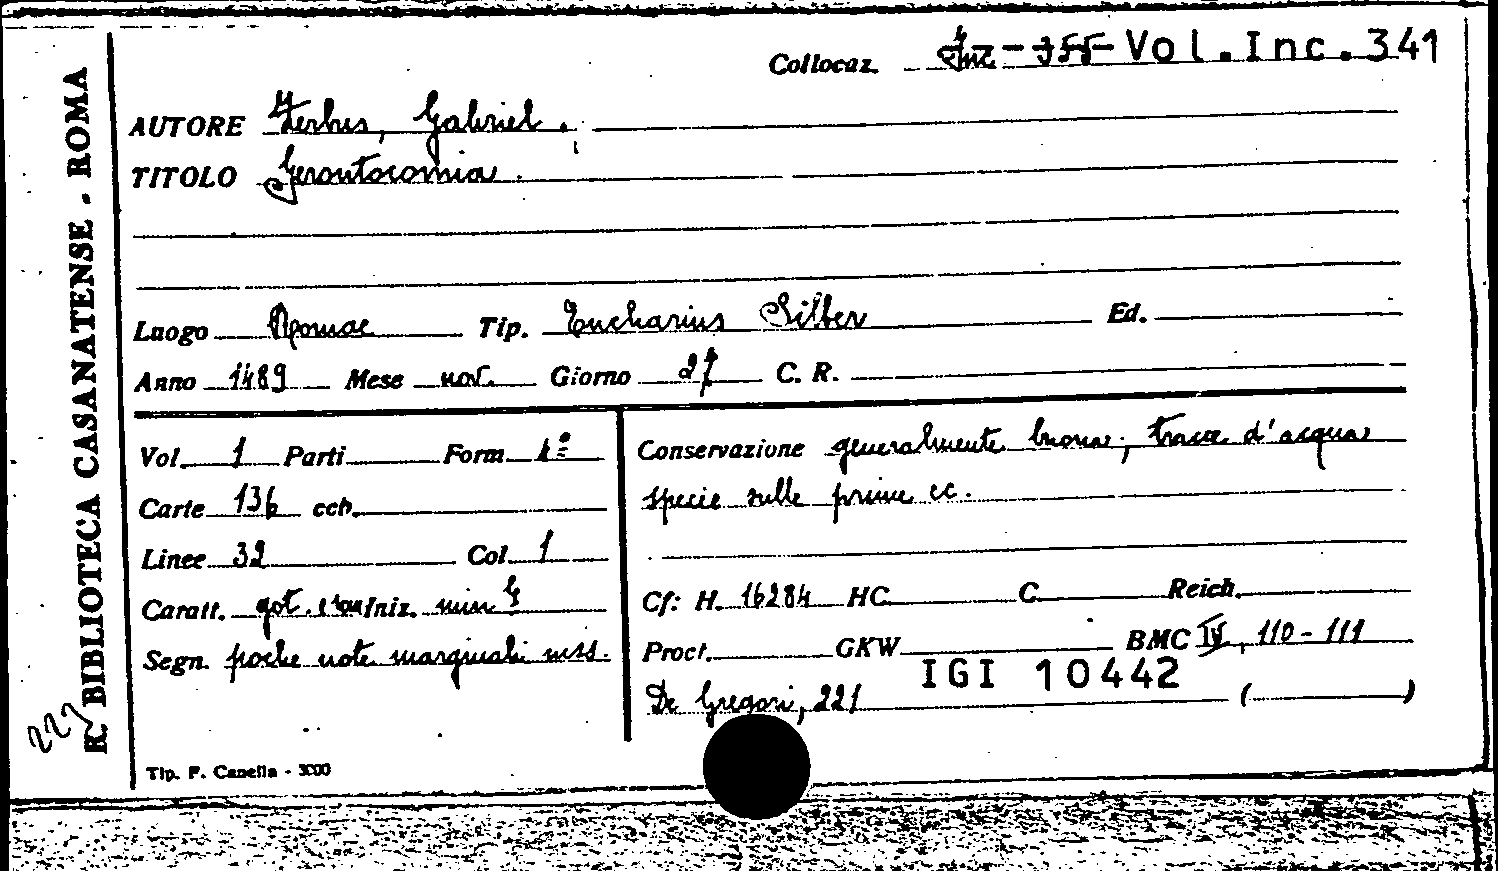 Collocaz. Inc - 355 Vol.Inc.341
AUTORE Zerbus, Gabriel.
TITOLO Gerontocomia.
Luogo Romae Tip. Eucharius Silber Ed.
Anno 1489 Mese nov. Giorno 27 C. R.
Vol. 1 Parti Form. 4°
Carte 136 ccb.
Linee 32 Col. 1
Caratt. got. Iniz. min
Segn. poche note marginali mss.
Conservazione generalmente buona; tracce d'acqua
specie sulle prime cc.
Cf: H. 16284 HC. C. Reich.
Proct. GKW BMC IV, 110-111
IGI 10442
De Gregori, 221 ( )
R. BIBLIOTECA CASANATENSE - ROMA
Tip. F. Canella - 3000